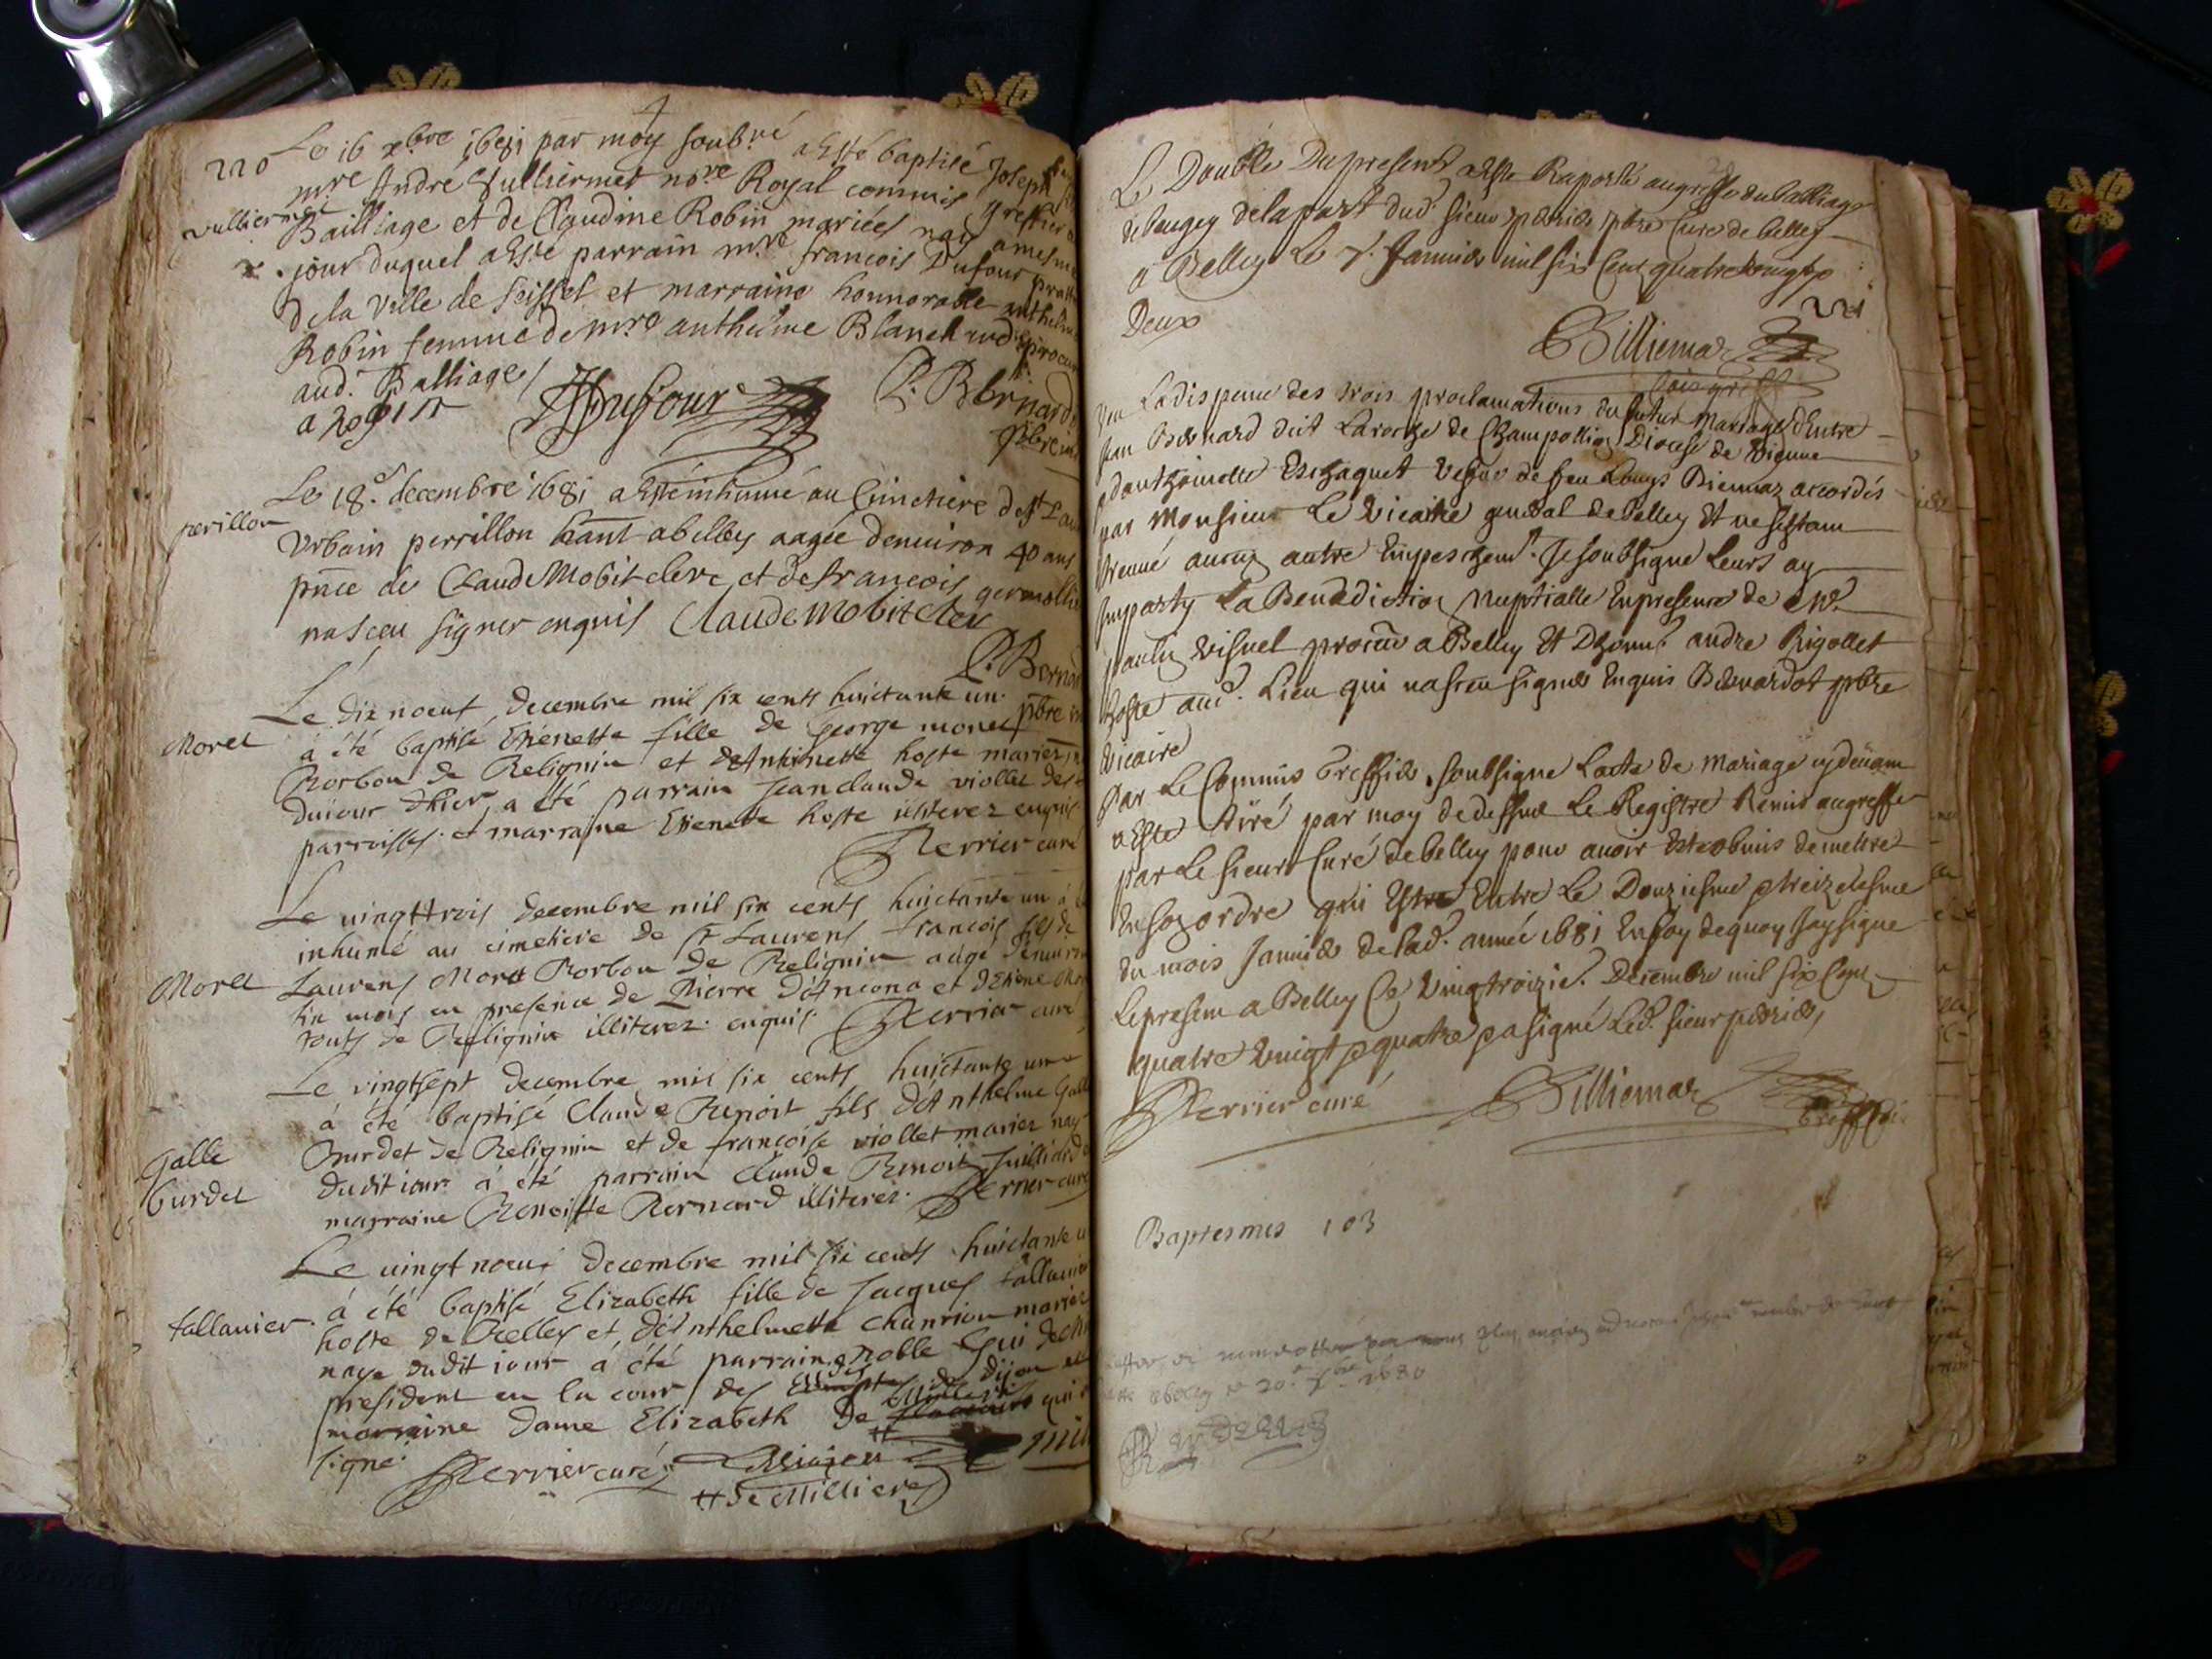 220
Le 16 xbre 1681 par moy soubné a esté baptisé Joseph
mre André Vulliermet nore Royal commis greffier
vulliermet
Bailliage et de Claudine Robin mariés nay
jour duquel a esté parrain mre francois Dufour
de la Ville de Seissel et marraine honnorable
Robin femme de mre anthelme Blanchard
aud. Balliage
a Robin Dufour P. Bernard
pbre
Le 18e decembre 1681 a esté inhumé au Cimetiere de st
perillon
Urbain perrillon hant a belley aagée denuiron 40 ans
pnce de Claude Mobit clerc et de francois
na sceu signer enquis Claude Mobit clerc
P. Bernard
pbre
Le dix noeuf decembre mil six cents huictante un
Morel
à été baptisé Etienette fille de George morel
Borbou de Belignin et d'Antoinette hoste mariez
du iour d'hier a été parrain Jean claude viollet
parroisses et marraine Etienette hoste illiterez enquis
Perrier curé
Le uingt trois decembre mil six cents huictante un à
inhumé au cimetiere de St Laurens francois fils de
Morel
Laurens Morel Borbou de Belignin
six mois en presence de Pierre d'Ancona et d'Etiene
touts de Belignin illiterez enquis Perrier curé
Le vingtsept decembre mil six cents huictante un
à été baptisé Claude Benoit fils d'Anthelme
Galle
burdet
Burdet de Belignin et de francoise viollet mariez nay
dudit iour à été parrain Claude Benoit
marraine Benoitte Bernard illiterez Perrier curé
Le uingt noeuf decembre mil six cents huictante
à été baptisé Elizabeth fille de Jacques
tallanier
hoste de Belley et d'Anthelmette chanrion mariez
naye dudit iour à été parrain noble Gui
president en la cour des Aydes de Dijon et
marraine dame Elizabeth de Milliere qui
signe
Perrier curé
de Milliere
Le Double du present a esté Raporté au greffe du balliage
de beugey de la part dud sieur perrier pbre Curé de belley
a Belley Le 7. Januier mil six Cent quatre vingtz
Deux
221
Billiemaz
Veu La dispense des trois proclamations du futur Mariage d'Entre
Jean Bernard dit Laroche de Champollion Diocese de Vienne
Et d'anthoinette Eschaquet Vefue de feu Louys Biennaz accordés
par Monsieur Le Vicaire general de belley Et ne s'estant
treuué aucun autre Empeschemt. Je soubsigné Leurs ay
Imparty La Benediction Nuptialle En presence de Me
paulin visnel procur a Belley Et D'honn. andre Rigollet
hoste aud. Lieu qui na sceu signer Enquis Bernardot pbre
vicaire
Par Le Commis Greffier soubsigné Lacte de Mariage cy deuant
a Esté tiré par moy de dessus Le Registre Remis au greffe
par Le sieur Curé de belley pour auoir Esté obmis de mettre
En son ordre qui Estoit Entre Le Douziesme Et treiziesme
du mois Januier de lad. année 1681 En foy de quoy Jay signé
Le present a Belley Ce vingtroizie. Decembre mil six Cent
quatre vingt quatre Et a signé Led. sieur perrier
Perrier curé Billiemaz
Greffier
Baptesmes 103